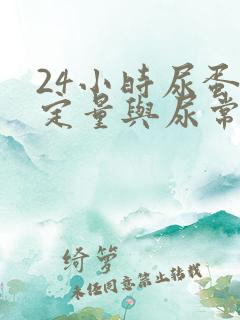 24小時尿蛋
定量與尿常
綺箩
未经同意禁止转载